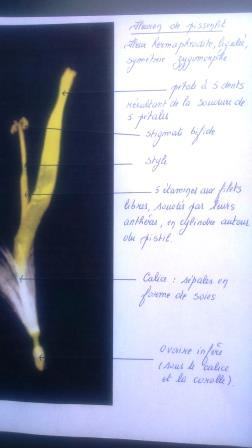 Fleuron de pissenlit
fleur hermaphrodite, ligulée,
symétrie zygomorphe
pétale à 5 dents
résultant de la soudure de
5 pétales
stigmate bifide
style
5 étamines aux filets
libres, soudés par leurs
anthères, en cylindre autour
du pistil.
Calice : sépales en
forme de soies
Ovaire infère
(sous le calice
et la corolle).